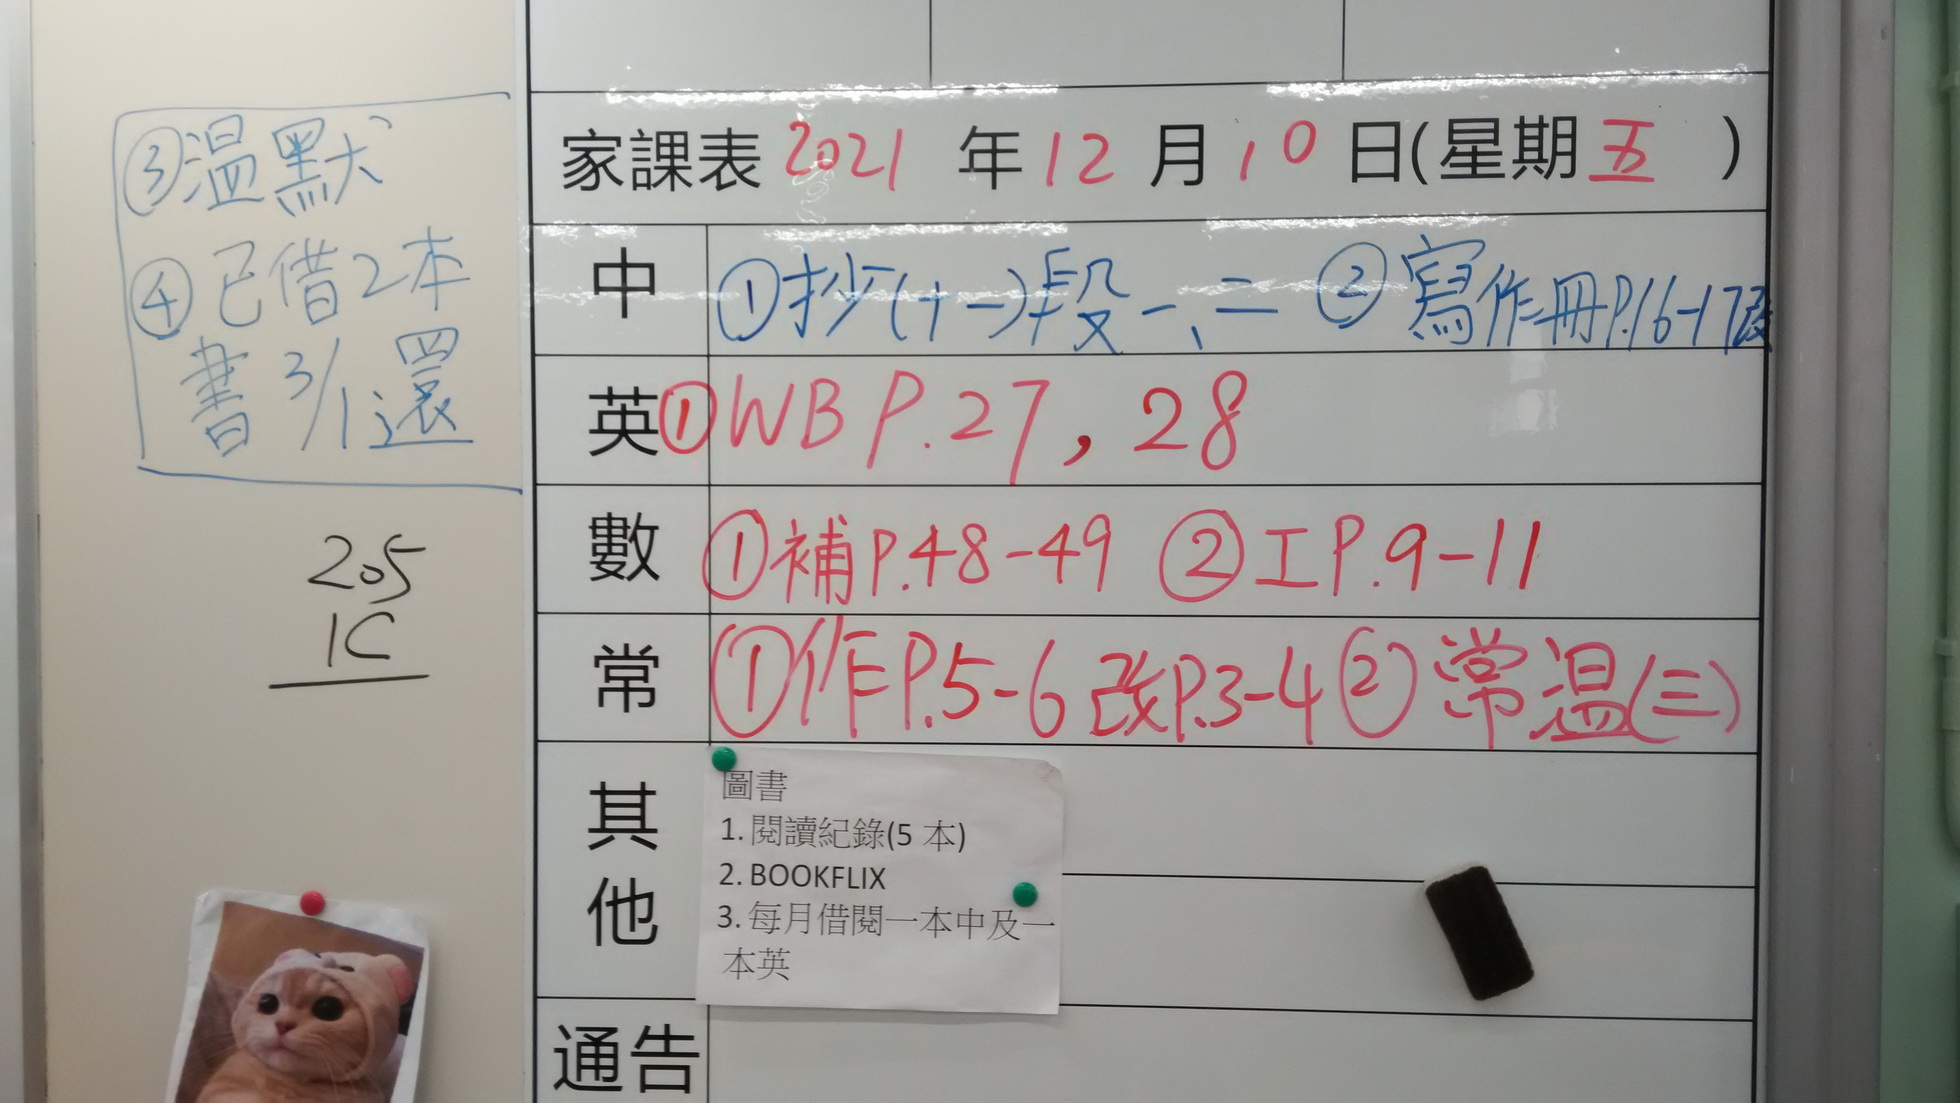 ③溫默
④已借2本
書3/1還
205
1C
家課表 2021 年 12 月 10 日(星期五)
中 ①抄(十一)段一、二 ②寫作冊P.16-17改
英 ①WB P.27, 28
數 ①補P.48-49 ②工P.9-11
常 ①作P.5-6改P.3-4 ②常溫(三)
其他
圖書
1. 閱讀紀錄(5 本)
2. BOOKFLIX
3. 每月借閱一本中及一
本英
通告